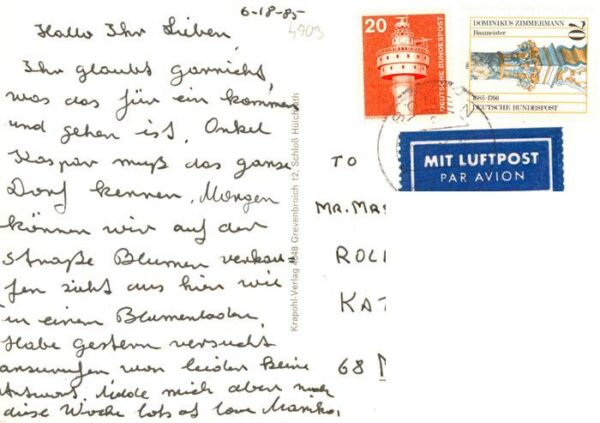 6-18-85
4903
Hallo Ihr Lieben,
Ihr glaubt garnicht,
was das für ein kommen
und gehen ist. Onkel
Kaspar muß das ganze
Dorf kennen. Morgen
können wir auf der
straße Blumen verkau-
fen sieht aus hier wie
in einen Blumenladen.
Habe gestern versucht
anzurufen war leider keine
Antwort. Melde mich aber noch
diese Woche lots of love
Krapohl-Verlag 4048 Grevenbroich 12, Schloß Hülchrath
20
DEUTSCHE BUNDESPOST
DOMINIKUS ZIMMERMANN
Baumeister
70
1685-1766
DEUTSCHE BUNDESPOST
MIT LUFTPOST
PAR AVION
TO
MR. MR
ROL
KAT
68